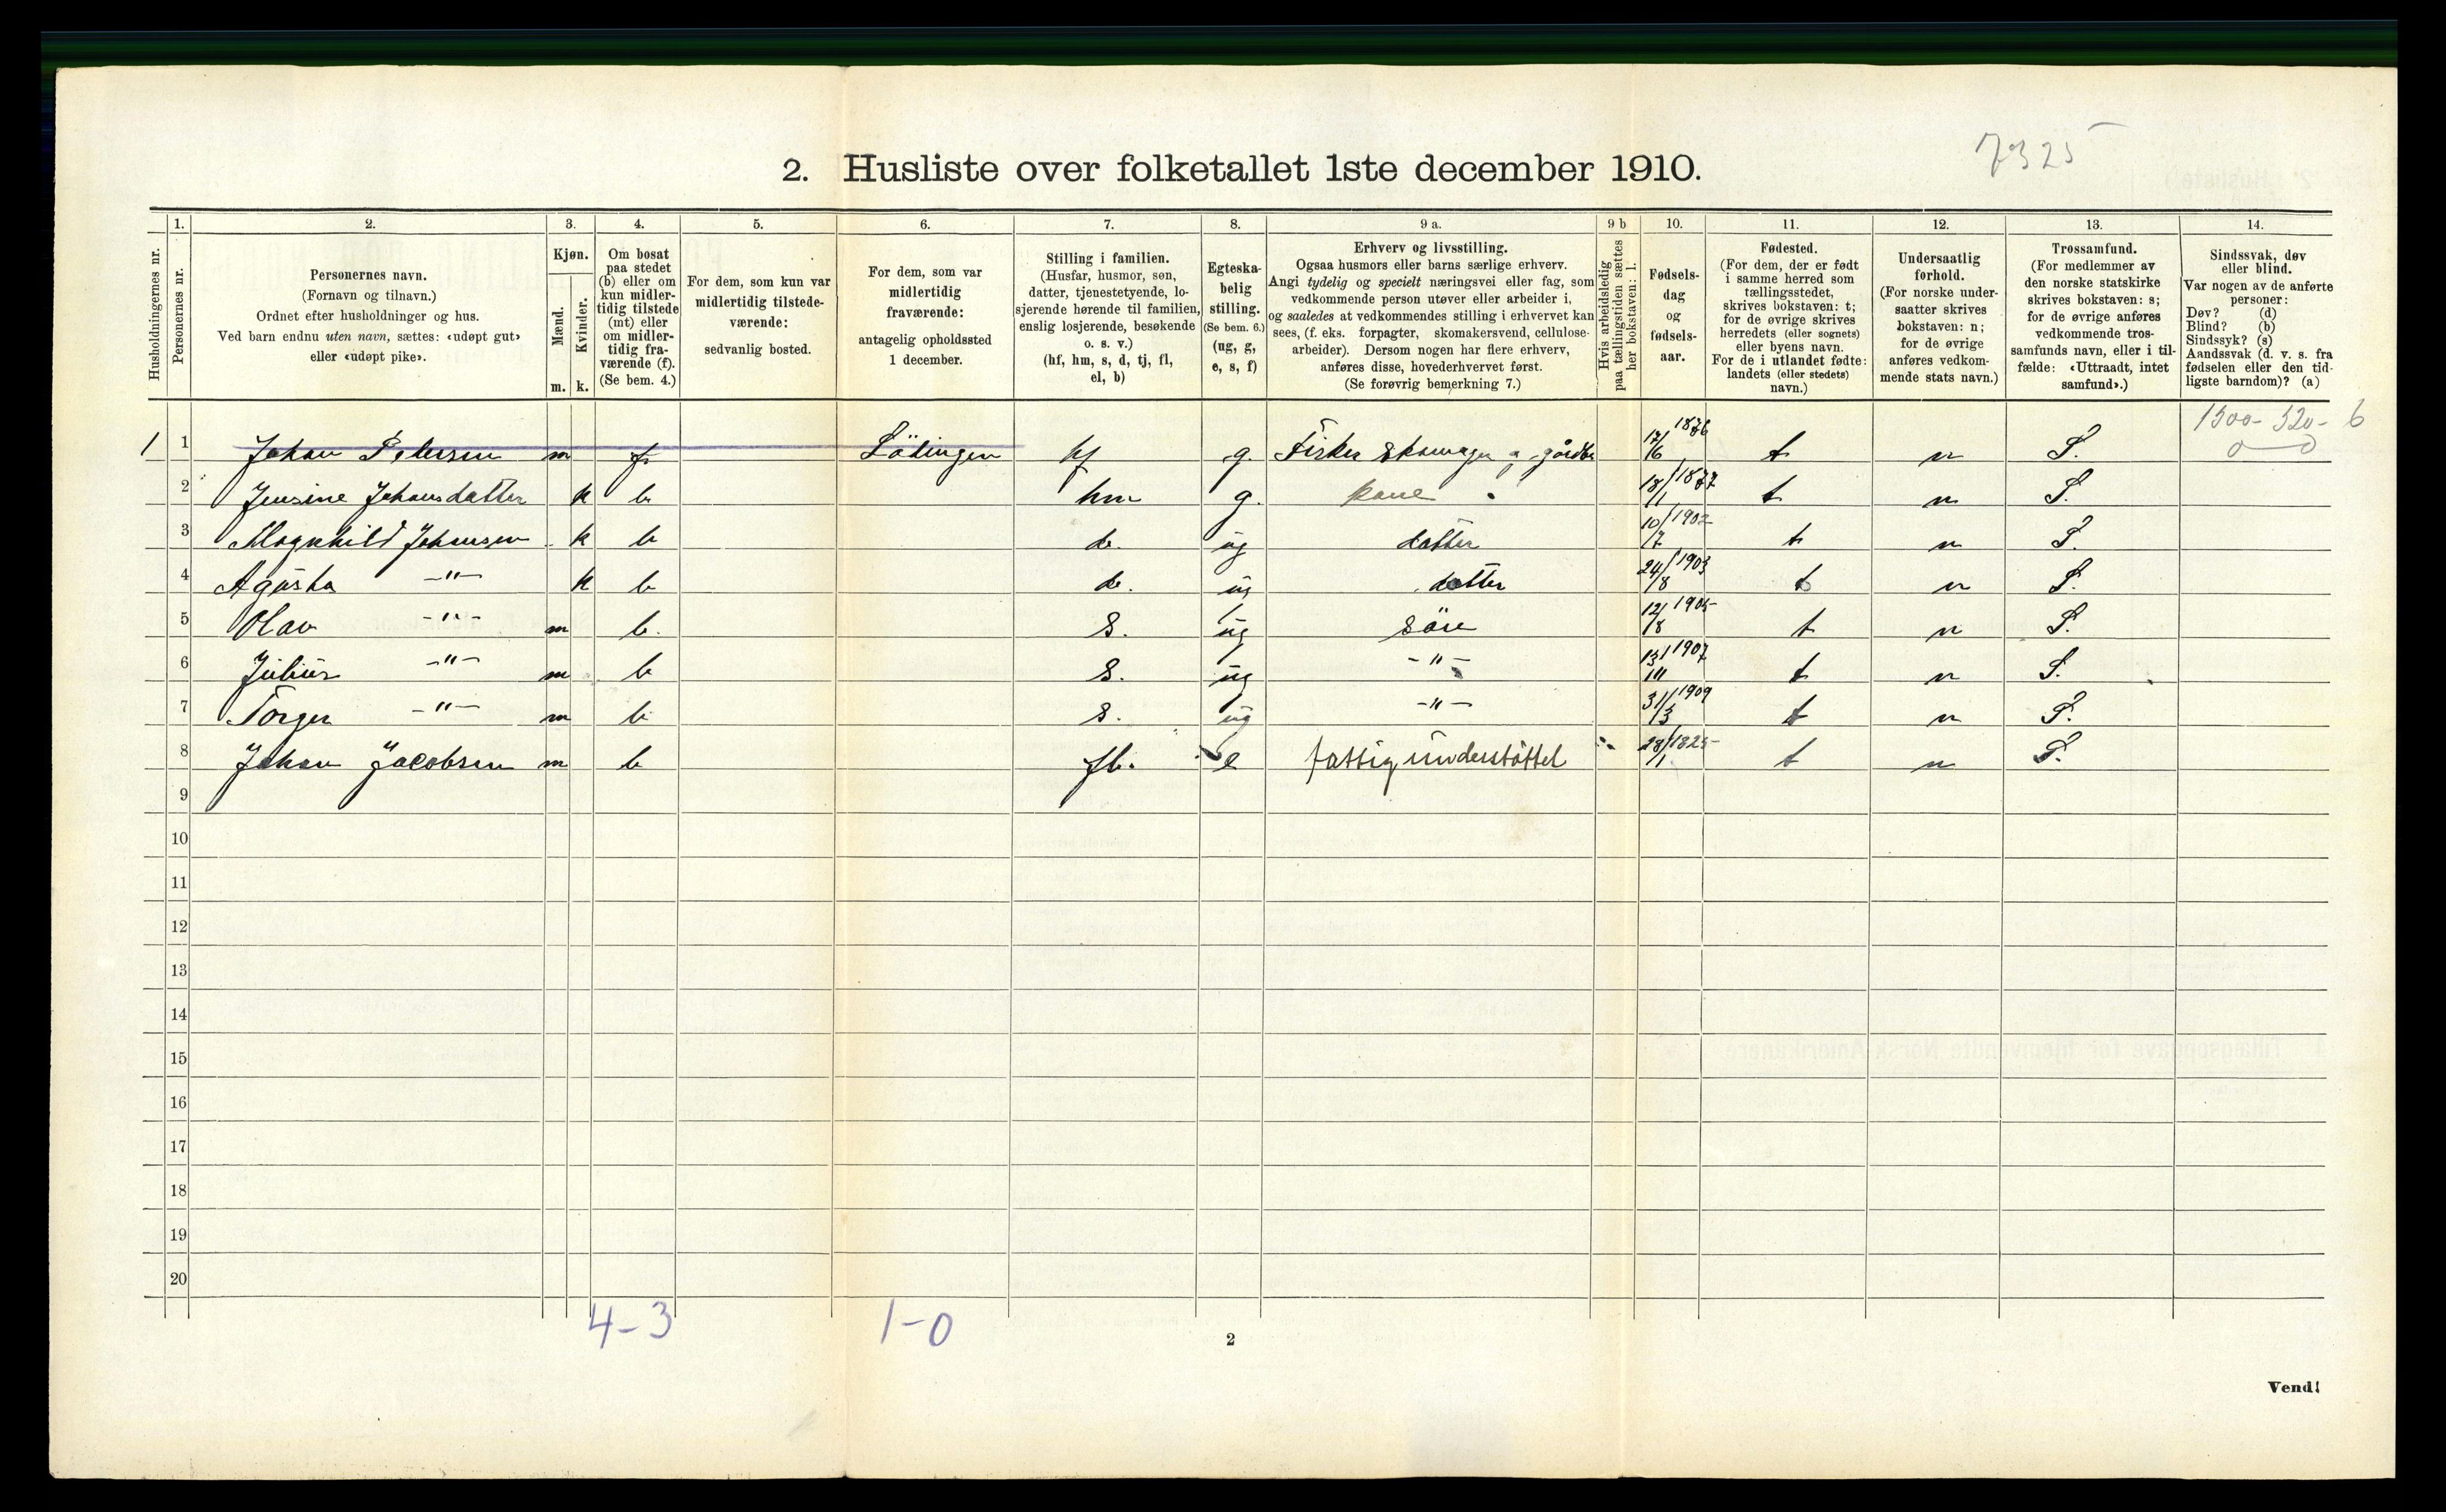 7325
2. Husliste over folketallet 1ste december 1910.
1. 2. 3. 4. 5. 6. 7. 8. 9 a. 9 b 10. 11. 12. 13. 14.
Husholdningernes nr.
Personernes nr.
Personernes navn.
(Fornavn og tilnavn.)
Ordnet efter husholdninger og hus.
Ved barn endnu uten navn, sættes: «udøpt gut»
eller «udøpt pike».
Kjøn.
Mænd.
Kvinder.
m. k.
Om bosat
paa stedet
(b) eller om
kun midler-
tidig tilstede
(mt) eller
om midler-
tidig fra-
værende (f).
(Se bem. 4.)
For dem, som kun var
midlertidig tilstede-
værende:
sedvanlig bosted.
For dem, som var
midlertidig
fraværende:
antagelig opholdssted
1 december.
Stilling i familien.
(Husfar, husmor, søn,
datter, tjenestetyende, lo-
sjerende hørende til familien,
enslig losjerende, besøkende
o. s. v.)
(hf, hm, s, d, tj, fl,
el, b)
Egteska-
belig
stilling.
(Se bem. 6.)
(ug, g,
e, s, f)
Erhverv og livsstilling.
Ogsaa husmors eller barns særlige erhverv.
Angi tydelig og specielt næringsvei eller fag, som
vedkommende person utøver eller arbeider i,
og saaledes at vedkommendes stilling i erhvervet kan
sees, (f. eks. forpagter, skomakersvend, cellulose-
arbeider). Dersom nogen har flere erhverv,
anføres disse, hovederhvervet først.
(Se forøvrig bemerkning 7.)
Hvis arbeidsledig
paa tællingstiden sættes
her bokstaven: l.
Fødsels-
dag
og
fødsels-
aar.
Fødested.
(For dem, der er født
i samme herred som
tællingsstedet,
skrives bokstaven: t;
for de øvrige skrives
herredets (eller sognets)
eller byens navn.
For de i utlandet fødte:
landets (eller stedets)
navn.)
Undersaatlig
forhold.
(For norske under-
saatter skrives
bokstaven: n;
for de øvrige
anføres vedkom-
mende stats navn.)
Trossamfund.
(For medlemmer av
den norske statskirke
skrives bokstaven: s;
for de øvrige anføres
vedkommende tros-
samfunds navn, eller i til-
fælde: «Uttraadt, intet
samfund».)
Sindssvak, døv
eller blind.
Var nogen av de anførte
personer:
Døv? (d)
Blind? (b)
Sindssyk? (s)
Aandssvak (d. v. s. fra
fødselen eller den tid-
ligste barndom)? (a)
1500 - 520 - 6
1 1 Johan Petersen m f Lödingen hf g. Fisker Skomager g gårdbr 17/6 1876 t n S.
2 Jensine Johansdatter k b hm g. kone 18/1 1877 t n S.
3 Magnhild Johansen k b d. ug datter 10/7 1902 t n S.
4 Agusta -"- k b d. ug datter 24/8 1903 t n S.
5 Olav -"- m b. S. ug Sön 12/8 1905 t n S.
6 Julius -"- m b S. ug -"- 13/11 1907 t n S.
7 Torger -"- m b S. ug -"- 31/3 1909 t n S.
8 Johan Jacobsen m b fl. e fattig understöttet 28/1 1825 t n S.
9
10
11
12
13
14
15
16
17
18
19
20
4-3 1-0
2
Vend!